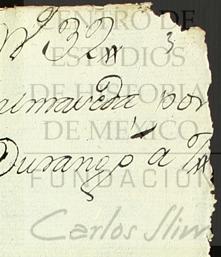 Nº 32
3
CENTRO DE
ESTUDIOS
DE HISTORIA
DE MÉXICO
por
Durango a
FUNDACIÓN
Carlos Slim